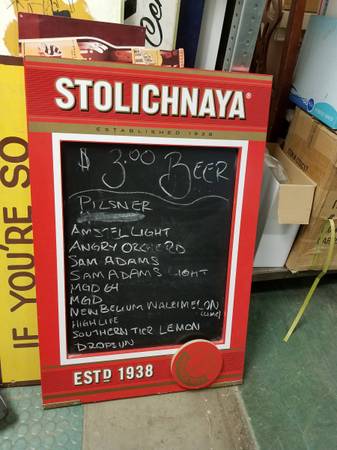 STOLICHNAYA®
ESTABLISHED 1938
$ 3.00 BEER
PILSNER
AMSTEL LIGHT
ANGRY ORCHARD
SAM ADAMS
SAM ADAMS LIGHT
MGD 64
MGD
NEW BELGIUM WATERMELON
(LIME)
HIGH LIFE
SOUTHERN TIER LEMON
DROP SUN
ESTD 1938
IF YOU'RE SO